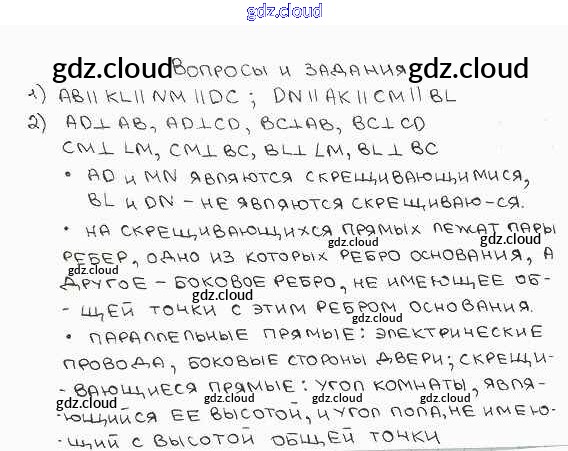 gdz.cloud
Вопросы и задания
1) AB || KL || NM || DC ; DN || AK || CM || BL
2) AD ⊥ AB, AD ⊥ CD, BC ⊥ AB, BC ⊥ CD
CM ⊥ LM, CM ⊥ BC, BL ⊥ LM, BL ⊥ BC
• AD и MN являются скрещивающимися,
BL и DN - не являются скрещиваю-ся.
• На скрещивающихся прямых лежат пары
ребер, одно из которых ребро основания, а
другое - боковое ребро, не имеющее об-
- щей точки с этим ребром основания.
• Параллельные прямые: электрические
провода, боковые стороны двери; скрещи-
- вающиеся прямые: угол комнаты, явля-
- ющийся ее высотой, и угол пола, не имею-
- щий с высотой общей точки
gdz.cloud
gdz.cloud
gdz.cloud
gdz.cloud
gdz.cloud
gdz.cloud
gdz.cloud
gdz.cloud
gdz.cloud
gdz.cloud
gdz.cloud
gdz.cloud